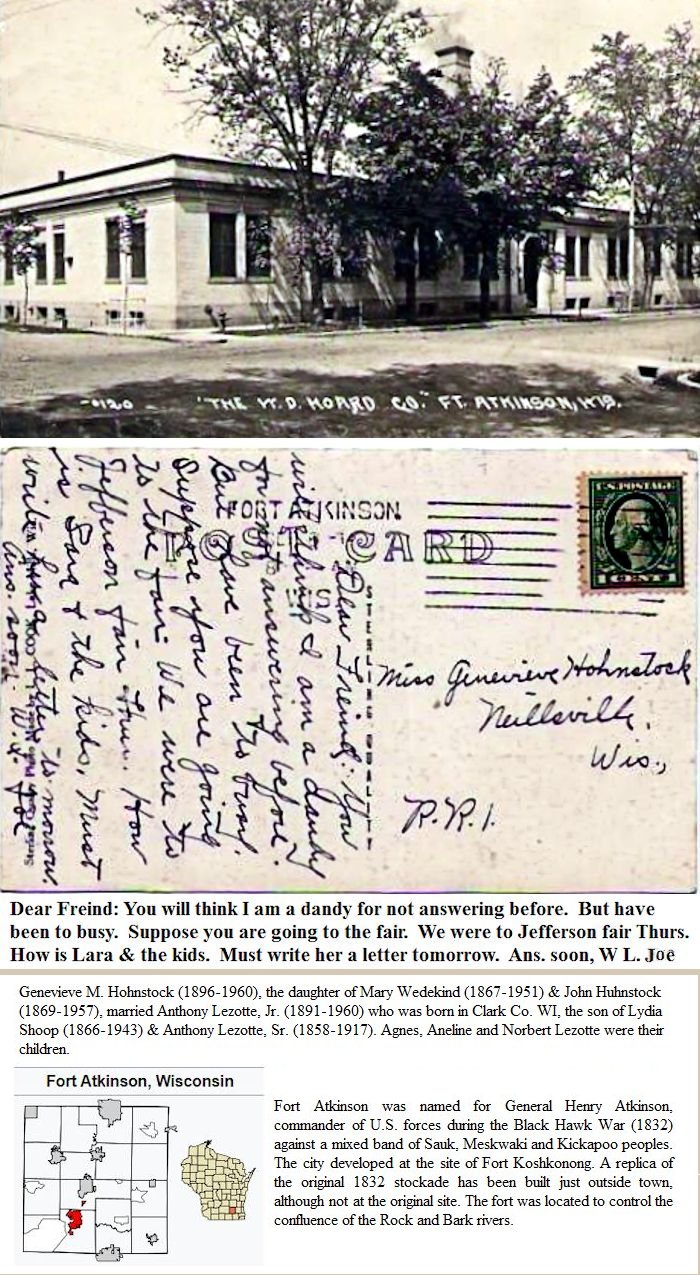 -0120- "THE W.D. HOARD CO." FT. ATKINSON, WIS.
FORT ATKINSON
POST CARD
U.S. POSTAGE
Dear Freind: You
will think I am a dandy
for not answering before.
But have been to busy.
Suppose you are going
to the fair. We were to
Jefferson fair Thur. How
is Lara & the kids. Must
write her a letter tomorrow.
Ans. soon. W.L. Joe
Miss Genevieve Hohnstock
Neillsville,
Wis.,
R.R.1.
Dear Freind: You will think I am a dandy for not answering before. But have
been to busy. Suppose you are going to the fair. We were to Jefferson fair Thurs.
How is Lara & the kids. Must write her a letter tomorrow. Ans. soon, W L. Joe
Genevieve M. Hohnstock (1896-1960), the daughter of Mary Wedekind (1867-1951) & John Huhnstock
(1869-1957), married Anthony Lezotte, Jr. (1891-1960) who was born in Clark Co. WI, the son of Lydia
Shoop (1866-1943) & Anthony Lezotte, Sr. (1858-1917). Agnes, Aneline and Norbert Lezotte were their
children.
Fort Atkinson, Wisconsin
Fort Atkinson was named for General Henry Atkinson,
commander of U.S. forces during the Black Hawk War (1832)
against a mixed band of Sauk, Meskwaki and Kickapoo peoples.
The city developed at the site of Fort Koshkonong. A replica of
the original 1832 stockade has been built just outside town,
although not at the original site. The fort was located to control the
confluence of the Rock and Bark rivers.